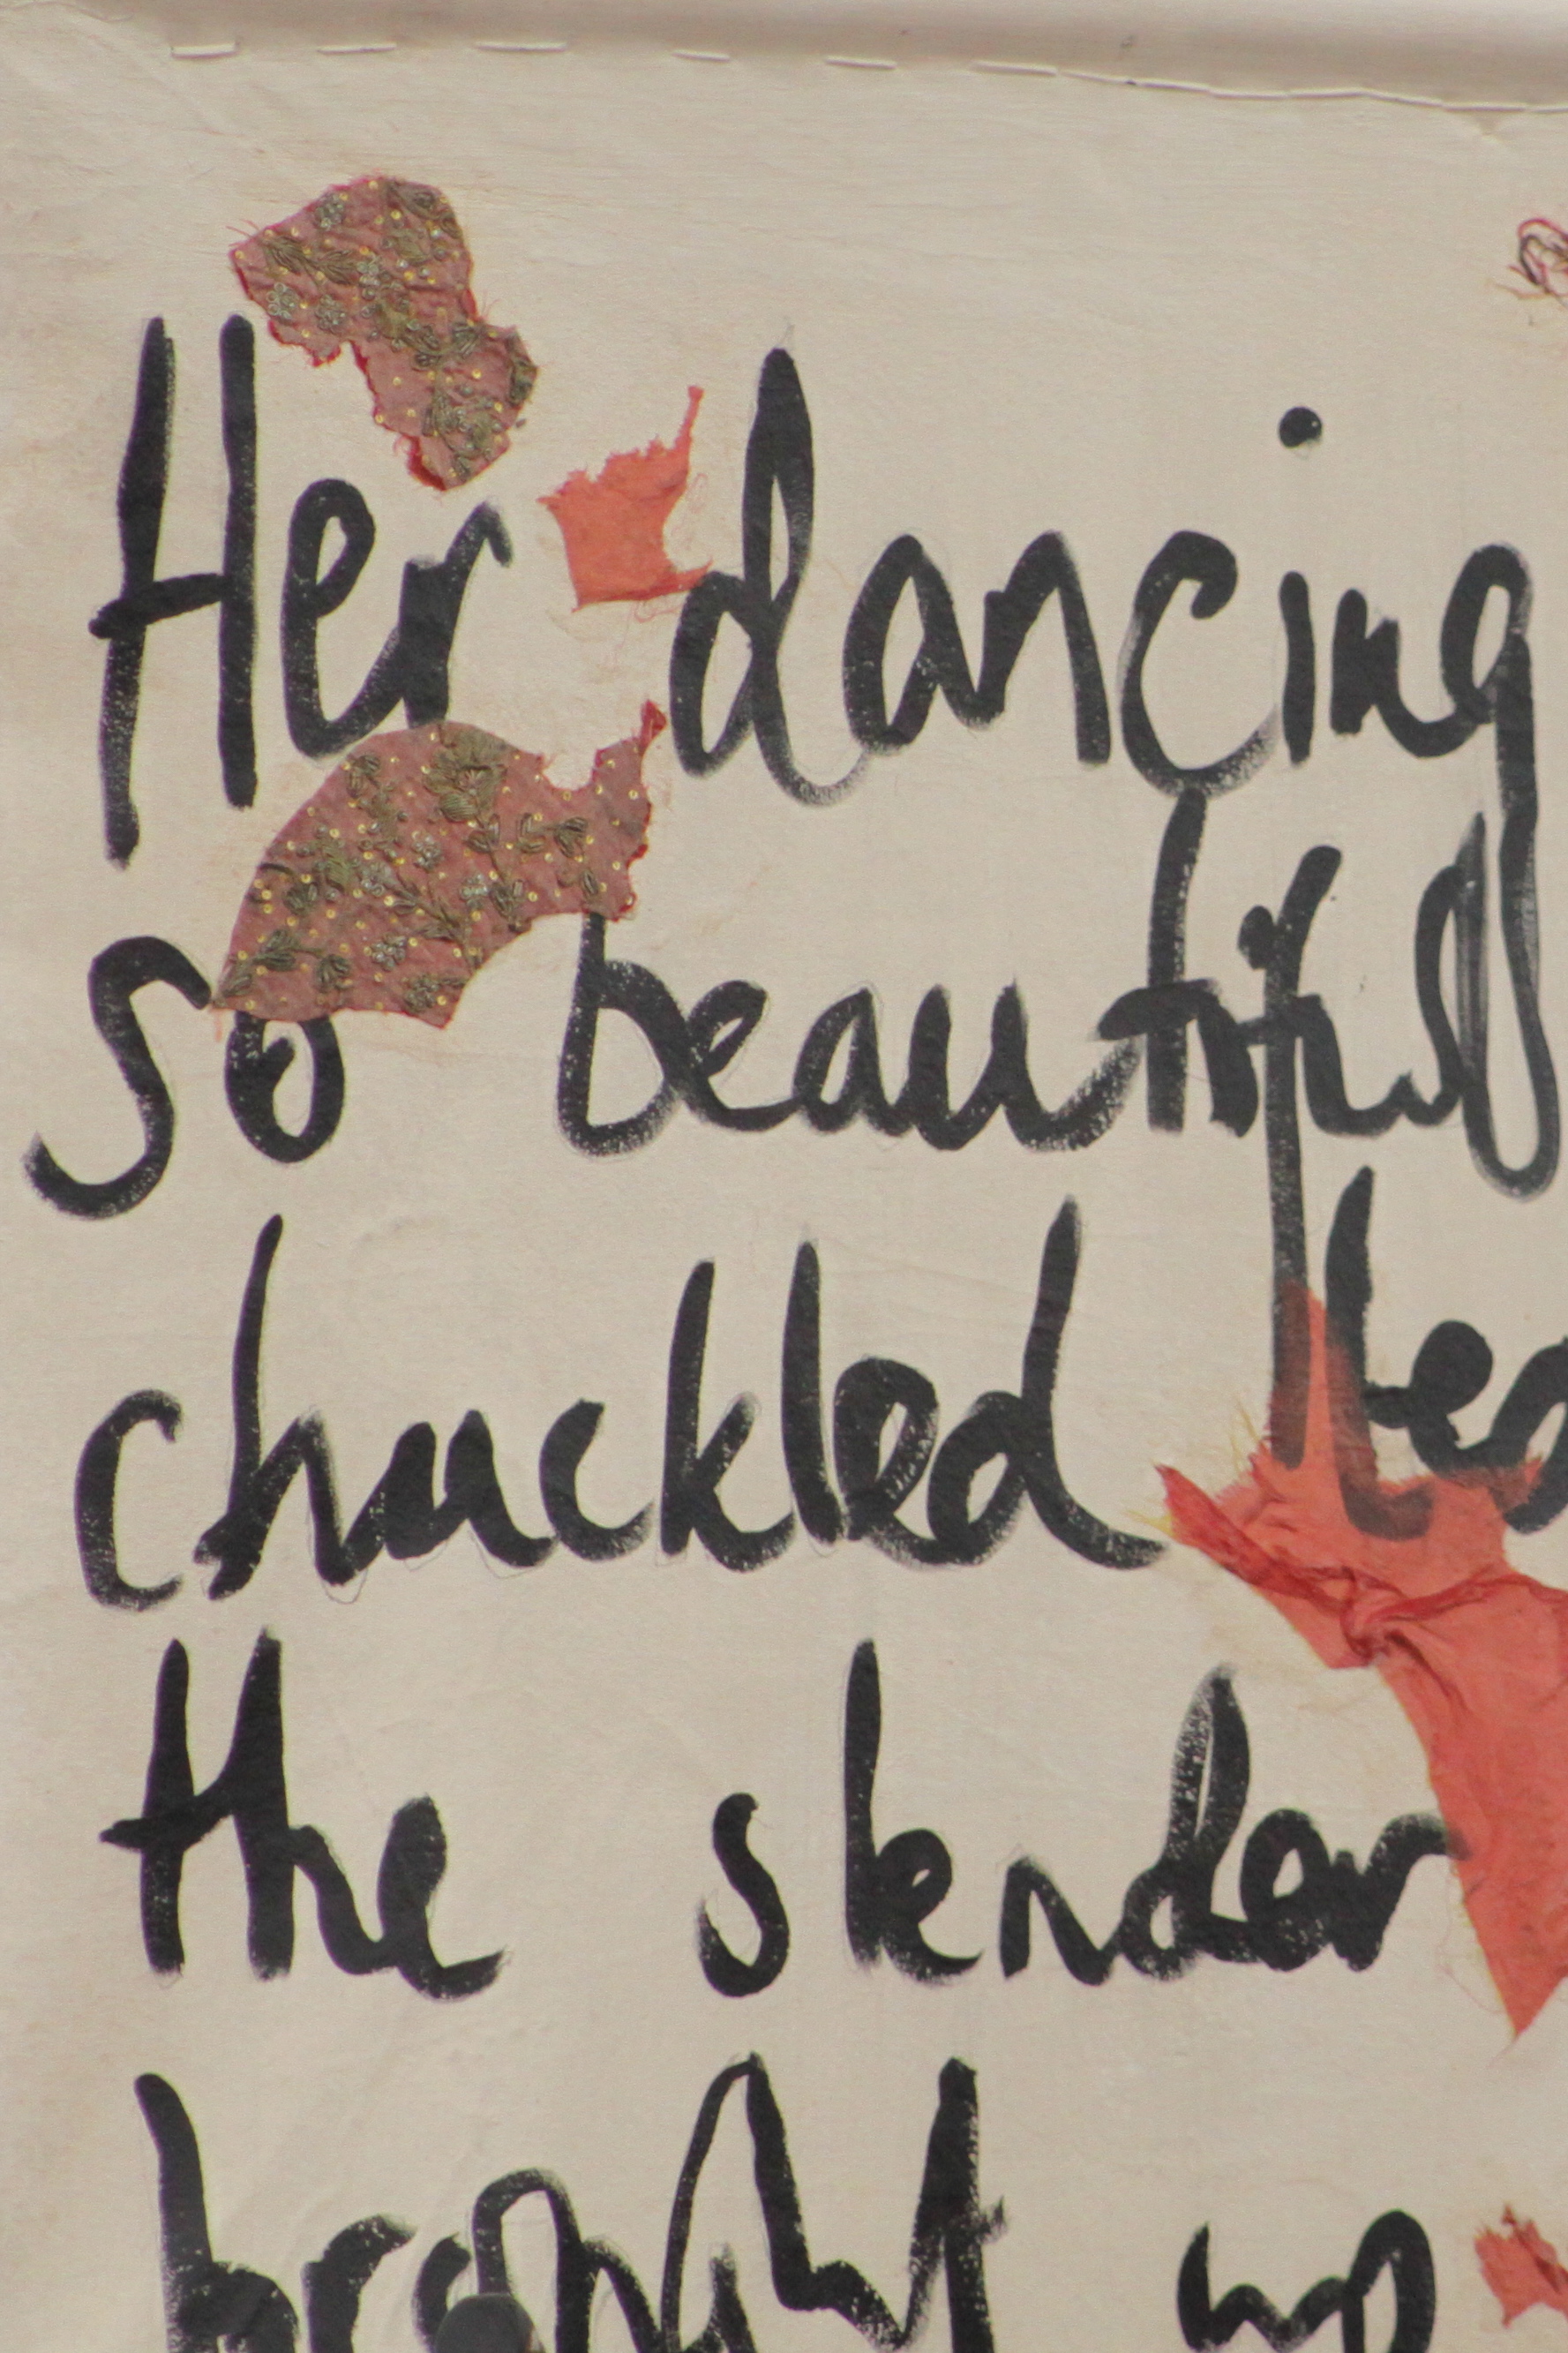 Her dancing
so beautiful
chuckled
the slender
brought up